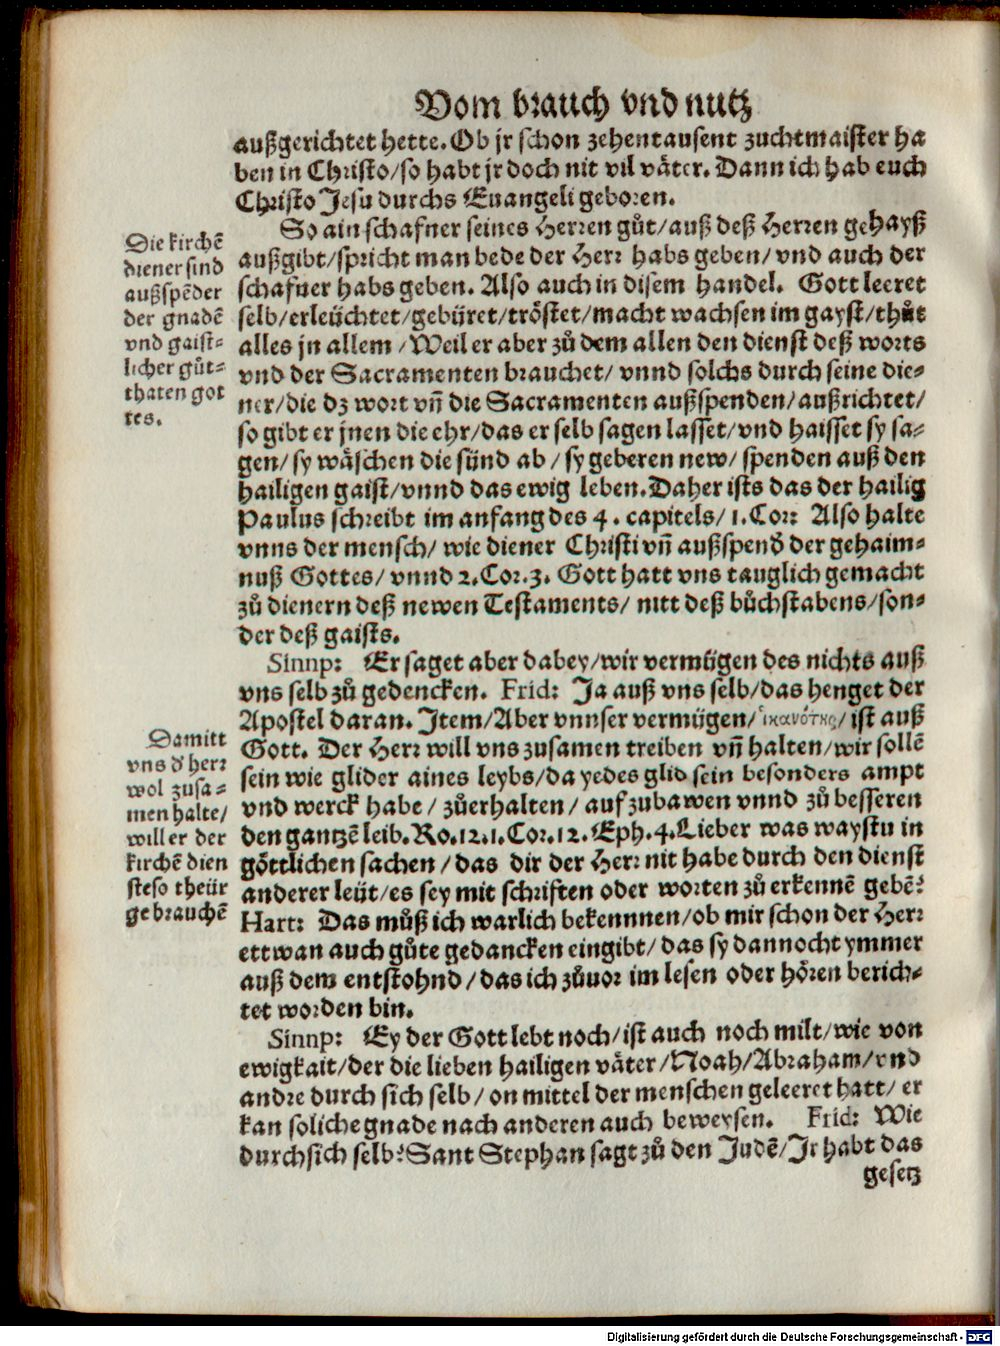 Vom brauch vnd nutz
außgerichtet hette. Ob jr schon zehentausent zuchtmaister ha
ben in Christo/so habt jr doch nit vil väter. Dann ich hab euch
Christo Jesu durchs Euangeli geboren.
So ain schafner seines Herren gůt/auß deß Herren gehayß
außgibt/spricht man bede der Herr habs geben/vnd auch der
schafner habs geben. Also auch in disem handel. Gott leeret
selb/erleüchtet/gebüret/tröstet/macht wachsen im gayst/thůt
alles jn allem/Weil er aber zů dem allen den dienst deß worts
vnd der Sacramenten brauchet/vnnd solchs durch seine die-
ner/die dz wort vñ die Sacramenten außspenden/außrichtet/
so gibt er jnen die ehr/das er selb sagen lasset/vnd haisset sy sa-
gen/sy wäschen die sünd ab/sy geberen new/spenden auß den
hailigen gaist/vnnd das ewig leben. Daher ists das der hailig
Paulus schreibt im anfang des 4. capitels/1. Cor: Also halte
vnns der mensch/wie diener Christi vñ außspend̛ der gehaim-
nuß Gottes/vnnd 2. Cor. 3. Gott hatt vns tauglich gemacht
zů dienern deß newen Testaments/nitt deß bůchstabens/son-
der deß gaists.
Sinnp: Er saget aber dabey/wir vermügen des nichts auß
vns selb zů gedencken. Frid: Ja auß vns selb/das henget der
Apostel daran. Item/Aber vnnser vermügen/ἱκανότης/ist auß
Gott. Der Herr will vns zusamen treiben vñ halten/wir sollē
sein wie glider aines leybs/da yedes glid sein besonders ampt
vnd werck habe/zůerhalten/auf zubawen vnnd zů besseren
den gantzē leib. Ro. 12. 1. Cor. 12. Eph. 4. Lieber was waystu in
göttlichen sachen/das dir der Herr nit habe durch den dienst
anderer leüt/es sey mit schriften oder worten zů erkennē gebē?
Hart: Das můß ich warlich bekennnen/ob mir schon der Herr
ettwan auch gůte gedancken eingibt/das sy dannocht ymmer
auß dem entstohnd/das ich zůuor im lesen oder hören berich-
tet worden bin.
Sinnp: Ey der Gott lebt noch/ist auch noch milt/wie von
ewigkait/der die lieben hailigen väter/Noah/Abraham/vnd
andre durch sich selb/on mittel der menschen geleeret hatt/er
kan soliche gnade nach anderen auch beweysen. Frid: Wie
durch sich selb? Sant Stephan sagt zů den Judē/Jr habt das
gesetz
Die kirchē
diener sind
außspēder
der gnadē
vnd gaist-
licher gůt-
thaten got
tes.
Damitt
vns d̛ herr
wol zusa-
men halte/
will er der
kirchē dien
stes o theür
gebrauchē
Digitalisierung gefördert durch die Deutsche Forschungsgemeinschaft - DFG